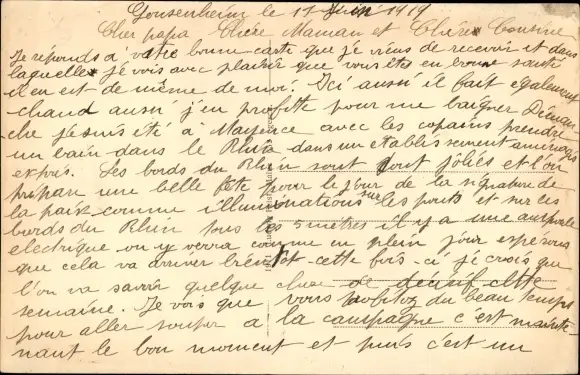 Gonsenheim le 11 Juin 1919
Cher papa Chère Maman et Chère Cousine
Je réponds à votre bonne carte que je viens de recevoir et dans
laquelle je vois avec plaisir que vous êtes en bonne santé
il en est de même de moi. Ici aussi il fait également
chaud aussi j'en profite pour me baigner Diman-
che je suis été a Mayence avec les copains prendre
un bain dans le Rhin dans un établissement
exprès. Les bords du Rhin sont tout jolies et l'on
prépare une belle fête pour le jour de la signature de
la paix comme illuminations sur les ponts et sur les
bords du Rhin tous les 5 mètres il y a une ampoule
electrique on y verra comme en plein jour esperons
que cela va arriver bientot cette fois-ci je crois que
l'on va savoir quelque chose de décisif cette
semaine. Je vois que vous profitez du beau temps
pour aller souper a la campagne c'est mainte-
nant le bon moment et puis c'est un